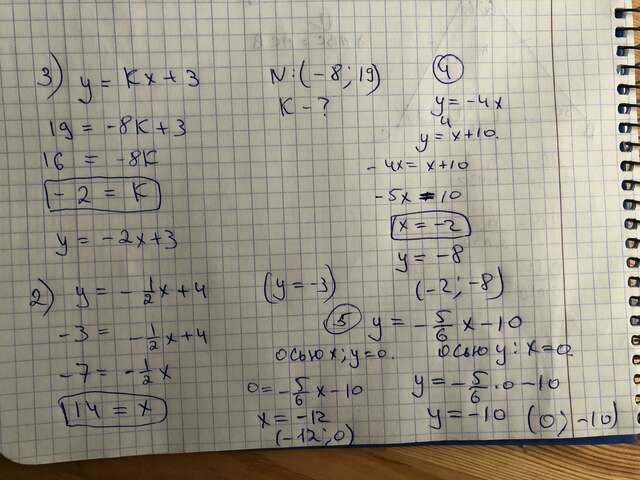 3) y = Kx + 3
N: (-8; 19)
K - ?
19 = -8K + 3
16 = -8K
-2 = K
y = -2x+3
2) y = -1/2x + 4
(y = -3)
-3 = -1/2x + 4
-7 = -1/2x
14 = x
4
y = -4x
и
y = x+10
-4x = x+10
-5x = 10
x = -2
y = -8
(-2; -8)
5 y = -5/6 x - 10
осью x; y=0.
0 = -5/6 x - 10
x = -12
(-12; 0)
осью y: x=0.
y = -5/6 · 0 - 10
y = -10 (0; -10)